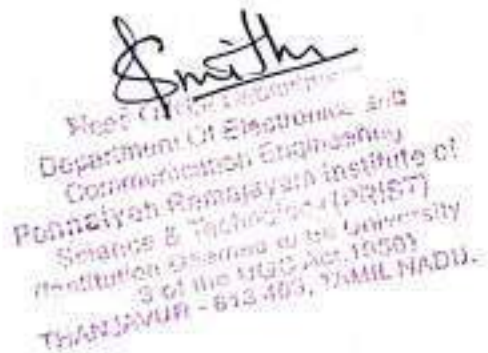 Smith
Head Of the Department
Department Of Electronics and
Communication Engineering
Ponnaiyah Ramajayam Institute of
Science & Technology (PRIST)
(Institution Deemed to be University
3 of the UGC Act 1956)
THANJAVUR - 613 403, TAMIL NADU.